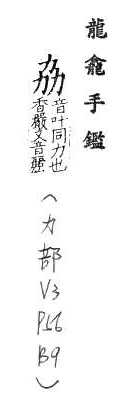 龍龕手鑑
劦
音叶同力也
香嚴又音
(力部 V3 P56 B9)